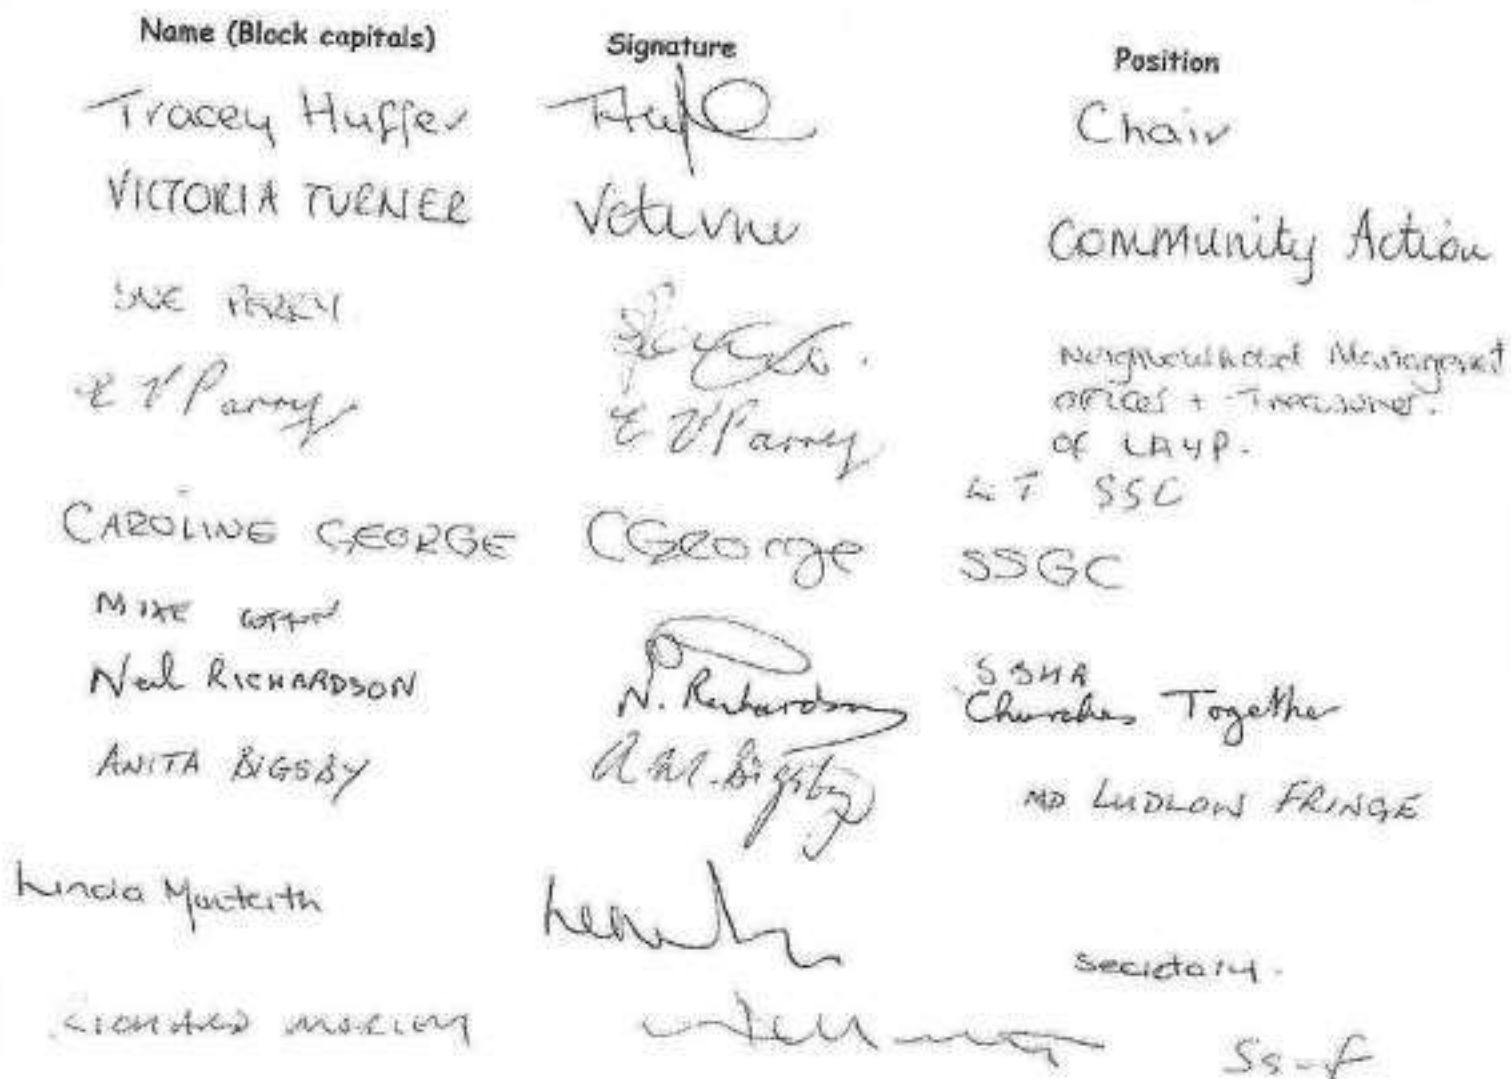 Name (Block capitals) Signature Position
Tracey Huffer Chair
VICTORIA TURNER Community Action
SUE PERRY
E V Parry E V Parry Neighbourhood Management
offices + Treasurer.
OF LAYP.
SSC
CAROLINE GEORGE CGeorge SSGC
MIKE
Neil RICHARDSON N. Richardson SSHA
Churches Together
ANITA BIGSBY A M. Bigsby MD LUDLOW FRINGE
Linda Monteith
Secretary.
RICHARD